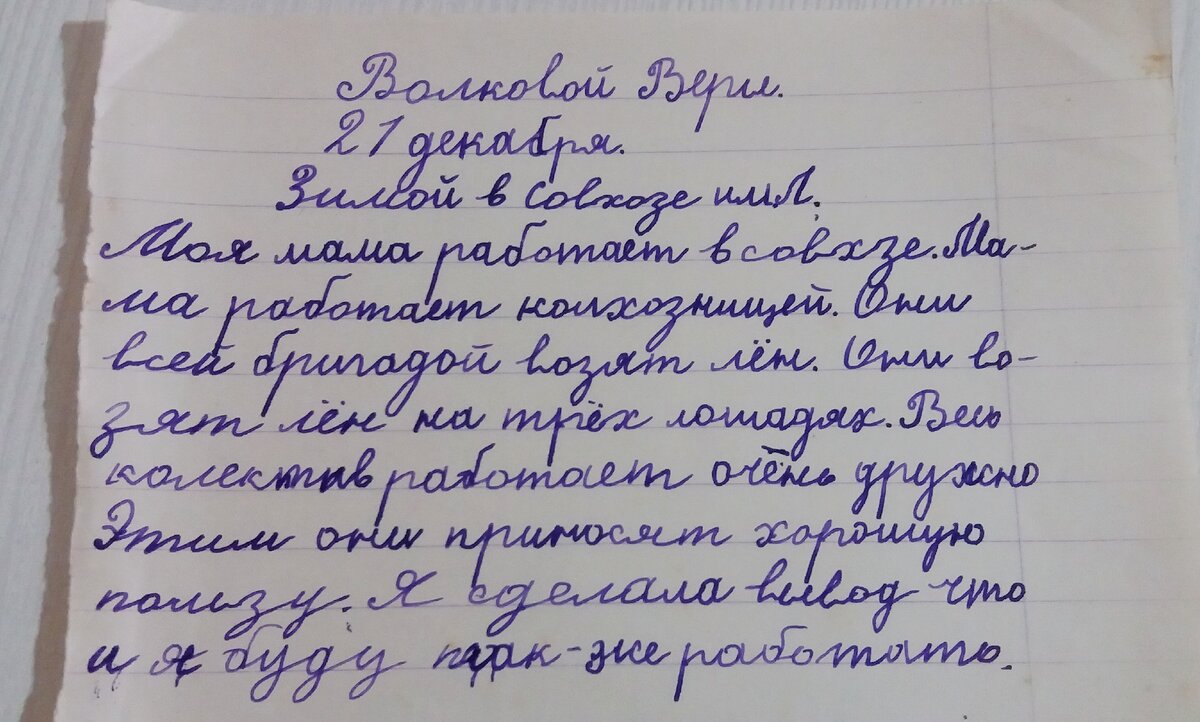 Волковой Веры.
21 декабря.
Зимой в совхозе им.Л.
Моя мама работает в совхзе. Ма-
ма работает колхозницей. Они
всей бригадой возят лён. Они во-
зят лён на трёх лошадях. Весь
колектив работает очень дружно
Этим они приносят хорошую
пользу. Я сделала вывод что
и я буду так-же работать.